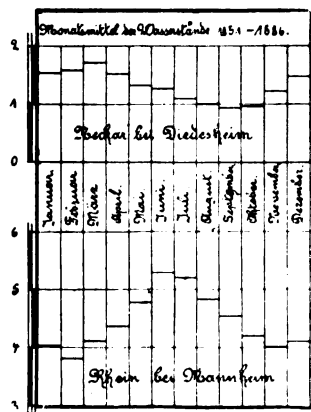 Monatsmittel der Wasserstände 1851-1886.
2
1
Neckar bei Diedesheim
0
Januar
Februar
März
April
Mai
Juni
Juli
August
September
Oktober
November
Dezember
6
5
4
Rhein bei Mannheim
3